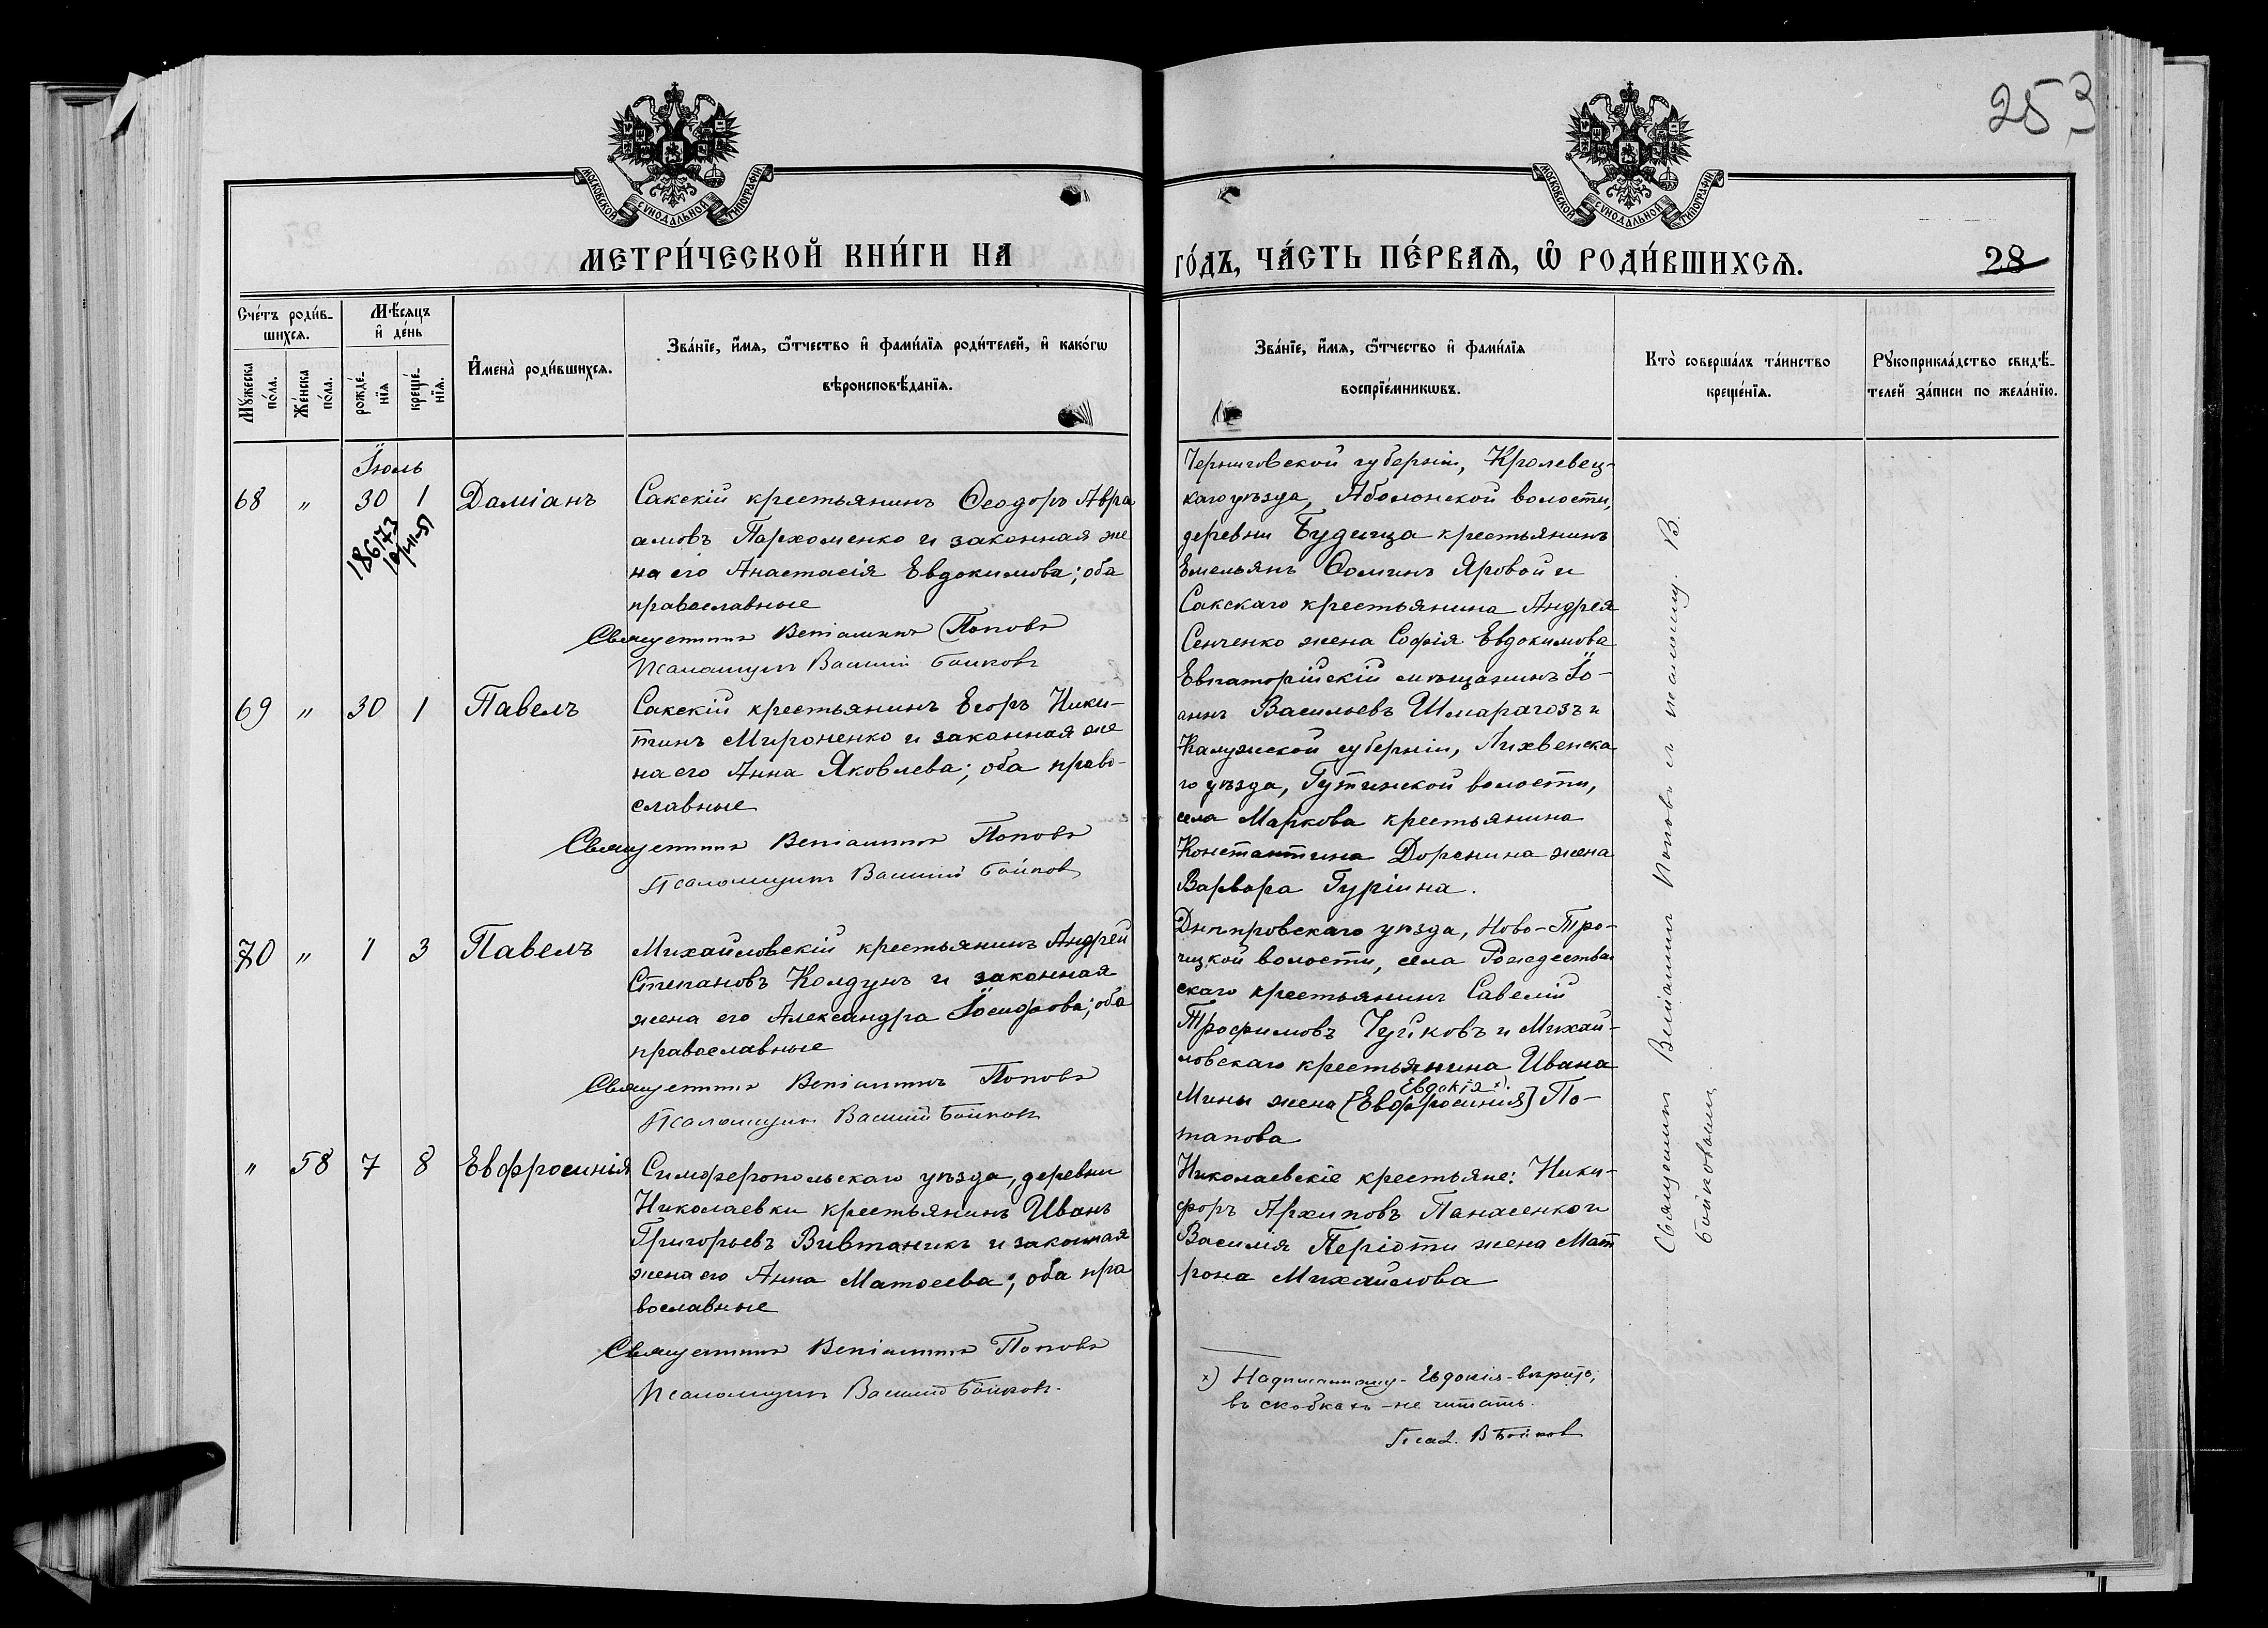 253
МОСКОВСКОЙ СѴНОДАЛЬНОЙ ТИПОГРАФІИ
МОСКОВСКОЙ СѴНОДАЛЬНОЙ ТИПОГРАФІИ
МЕТРИ́ЧЕСКОЙ КНИ́ГИ НА
ГО́ДЪ, ЧА́СТЬ ПЕ́РВАѦ, Ѿ РОДИ́ВШИХСѦ.
28
Сче́тъ роди́в-
шихсѧ.
Мѣ́сѧцъ
и҆ де́нь
Мꙋ́жеска
по́ла.
Же́нска
по́ла.
рожде́-
нїѧ
креще́-
нїѧ.
И҆мена̀ роди́вшихсѧ.
Зва́нїе, и҆́мѧ, ѻ҆́тчество и҆ фами́лїѧ роди́телей, и҆ како́гѡ
вѣроисповѣ́данїѧ.
Зва́нїе, и҆́мѧ, ѻ҆́тчество и҆ фами́лїѧ
воспрїе́мникѡвъ.
Кто̀ соверша́лъ та́инство
креще́нїѧ.
Рꙋкоприкла́дство свидѣ́-
телей за́писи по жела́нїю.
Іюль
68 " 30 1 Даміанъ
18617/3
Сакскій крестьянинъ Ѳеодоръ Авра
амовъ Пархоменко и законная же
на его Анастасія Евдокимова; оба
православные
Священникъ Веніаминъ Поповъ
Псаломщикъ Василий Бойковъ
Черниговской губерніи, Кролевец-
каго уѣзда, Аболонской волости,
деревни Будища крестьянинъ
Емельянъ Ѳоминъ Яровой и
Сакскаго крестьянина Андрея
Сенченко жена Софія Евдокимова
69 " 30 1 Павелъ
Сакскій крестьянинъ Егоръ Ники-
тинъ Мироненко и законная же
на его Анна Яковлева; оба право-
славные
Священникъ Веніаминъ Поповъ
Псаломщикъ Василий Бойковъ
Евпаторійскій мѣщанинъ Іо-
аннъ Васильевъ Шмарагозъ и
Калужской губерніи, Лихвенска
го уѣзда, Гутинской волости,
села Маркова крестьянина
Константина Доренина жена
Варвара Гуріина.
70 " 1 3 Павелъ
Михайловскій крестьянинъ Андрей
Степановъ Колдунъ и законная
жена его Александра Іосифова; оба
православные
Священникъ Веніаминъ Поповъ
Псаломщикъ Василий Бойковъ
Днѣпровскаго уѣзда, Ново-Тро-
ицкой волости, села Рождествен
скаго крестьянинъ Савелій
Трофимовъ Чуйковъ и Михай-
ловскаго крестьянина Ивана
Евдокія х).
Мины жена [Евфросинія] По-
тапова
" 58 7 8 Евфросинія
Симферопольскаго уѣзда, деревни
Николаевки крестьянинъ Иванъ
Григорьевъ Вивтаникъ и законная
жена его Анна Матѳеева; оба пра
вославные
Священникъ Веніаминъ Поповъ
Псаломщикъ Василий Бойковъ.
Николаевскіе крестьяне: Ники-
форъ Архиповъ Панасенко и
Василія Періоти жена Мат
рона Михайлова
х) Надписанному - Евдокія - вѣрить,
въ скобкахъ - не читать.
Псал. В Бойков
Священникъ Веніаминъ Поповъ съ псаломщ. В.
Бойковымъ